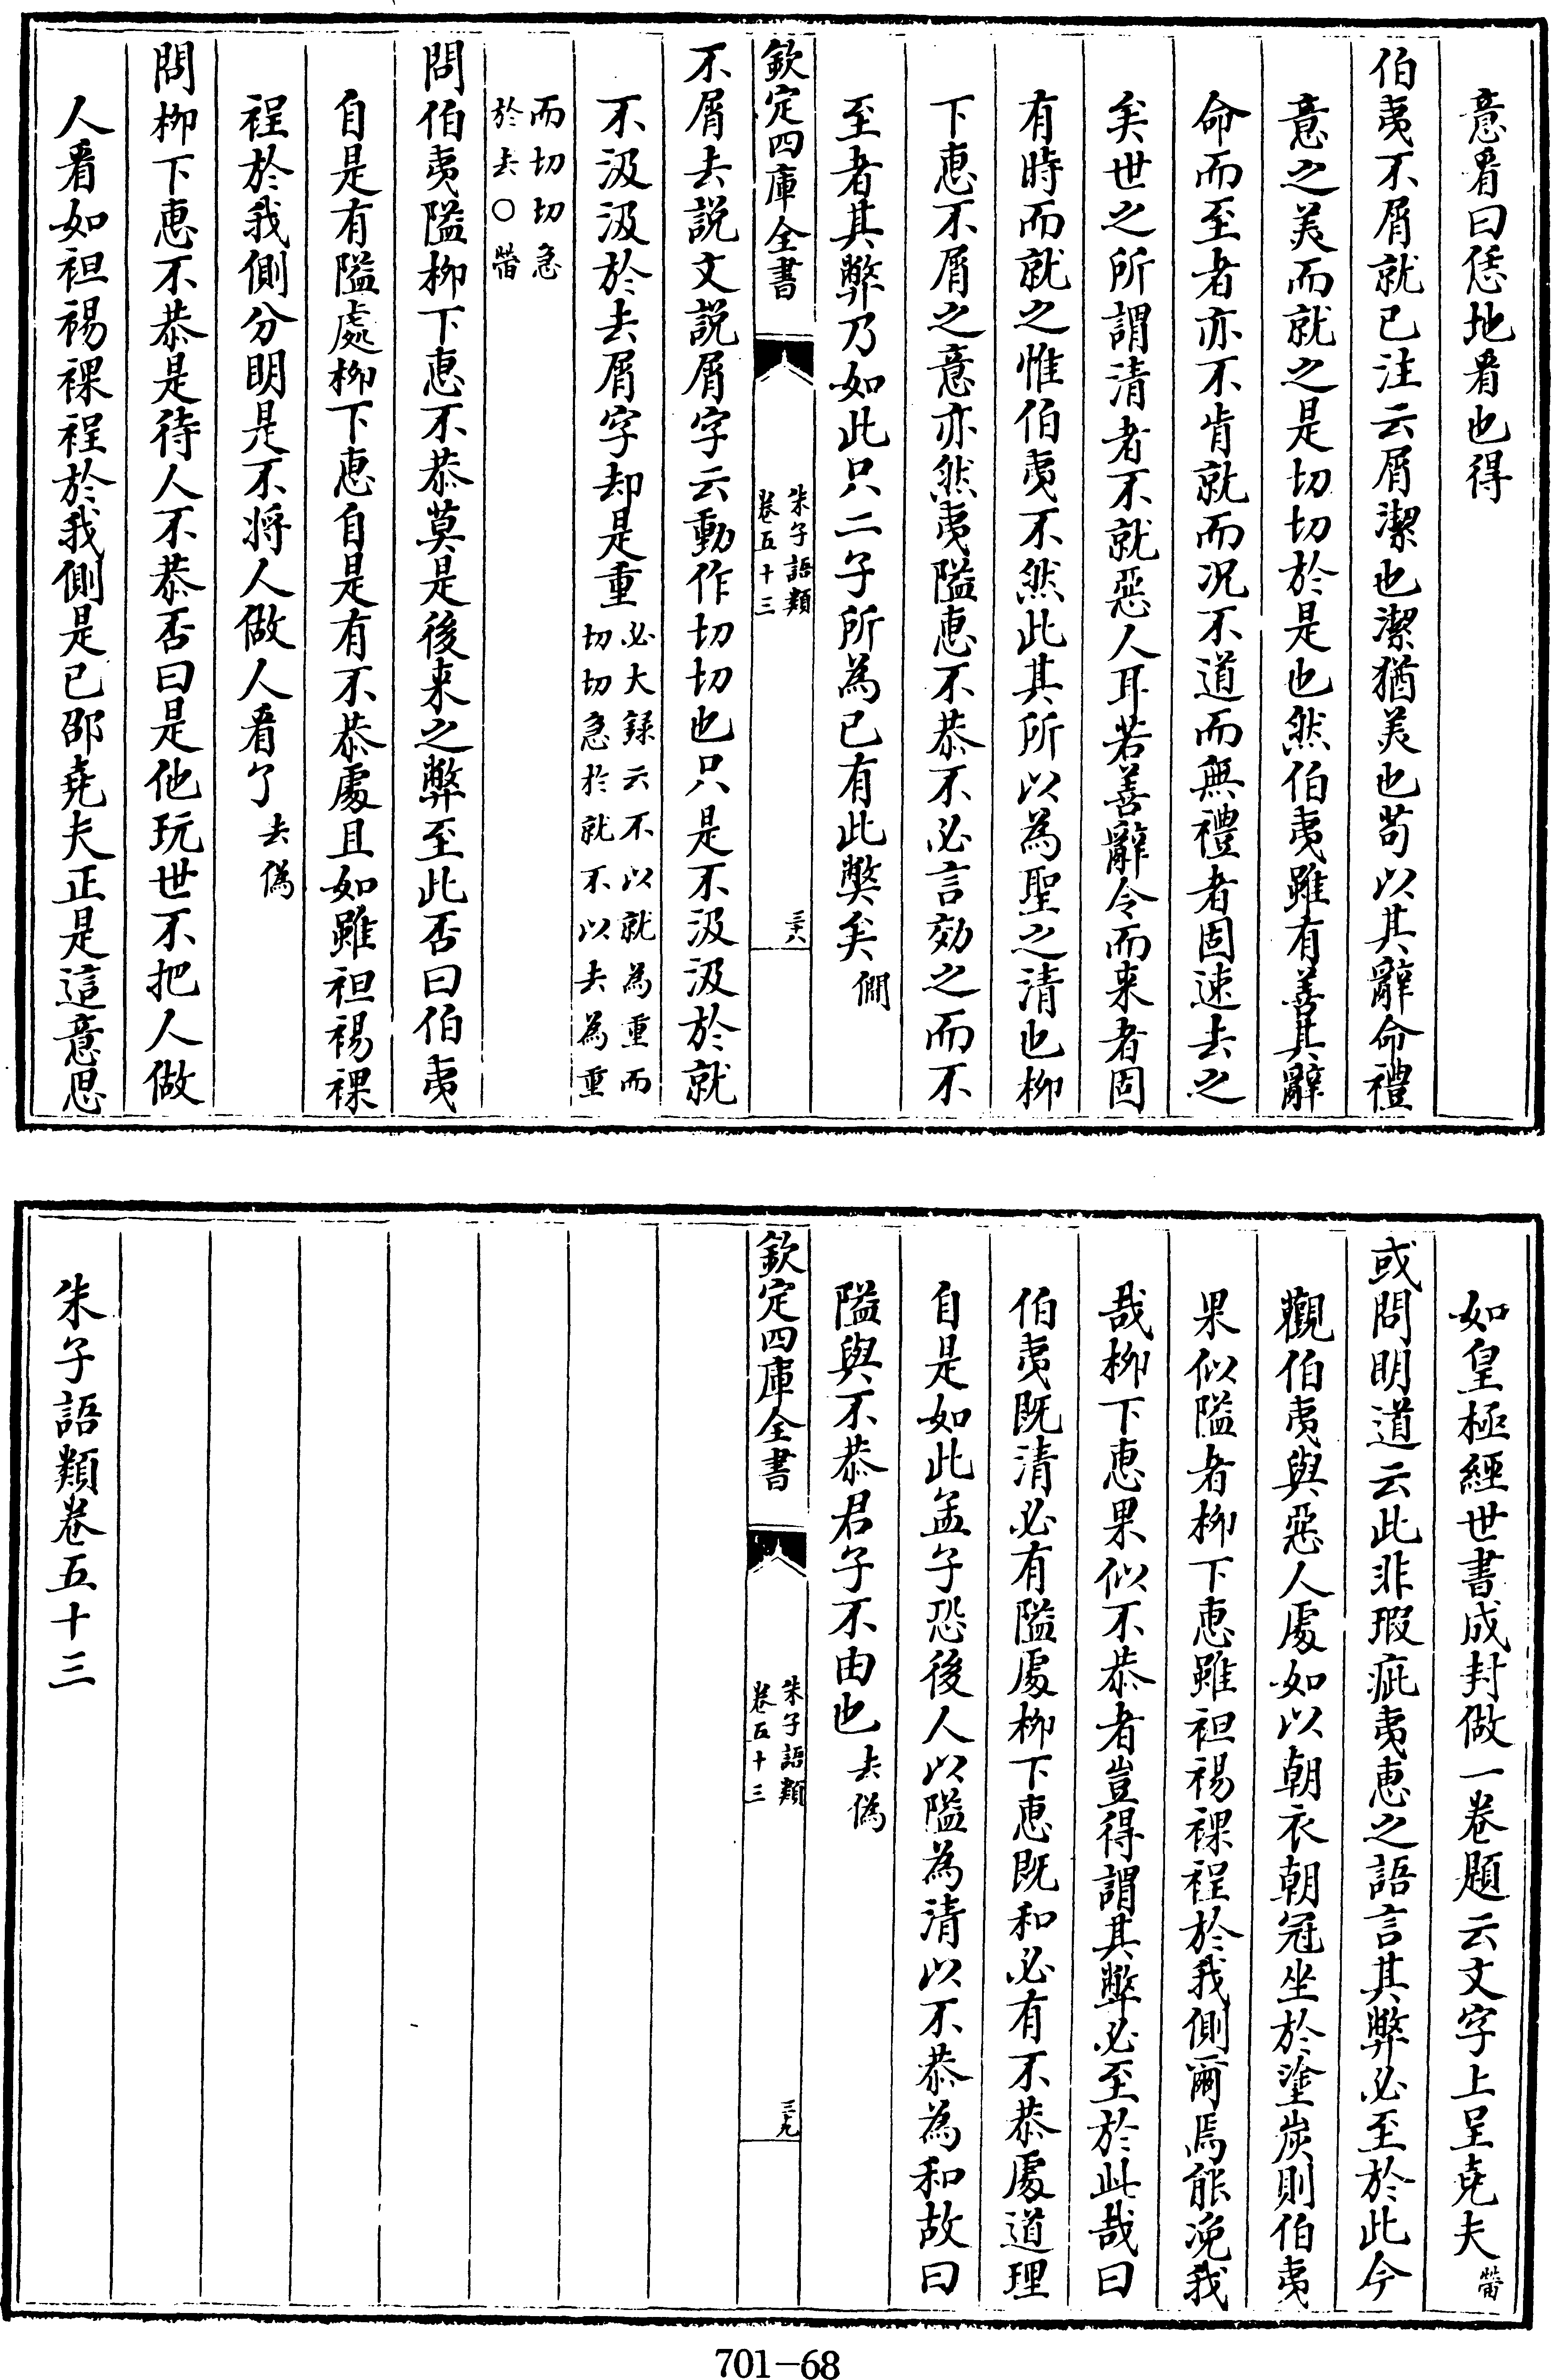 意看曰恁地看也得
伯夷不屑就已注云屑潔也潔猶美也茍以其辭命禮
意之美而就之是切切於是也然伯夷雖有善其辭
命而至者亦不肯就而况不道而無禮者固速去之
矣世之所謂清者不就惡人耳若善辭令而来者固
有時而就之惟伯夷不然此其所以為聖之清也柳
下惠不屑之意亦然夷隘惠不恭不必言効之而不
至者其弊乃如此只二子所為已有此弊矣 僩
欽定四庫全書
朱子語類
卷五十三
三十八
不屑去説文説屑字云動作切切也只是不汲汲於就
不汲汲於去屑字却是重 必大録云不以就為重而
切切急於就不以去為重
而切切急
於去○𤲞
問伯夷隘柳下惠不恭莫是後来之弊至此否曰伯夷
自是有隘處柳下惠自是有不恭處且如雖袒裼裸
裎於我側分明是不將人做人看了 去偽
問柳下惠不恭是待人不恭否曰是他玩世不把人做
人看如袒裼裸裎於我側是已邵堯夫正是這意思
如皇極經世書成封做一卷題云文字上呈堯夫 𤲞
或問明道云此非瑕疵夷惠之語言其弊必至於此今
觀伯夷與惡人處如以朝衣朝冠坐於塗炭則伯夷
果似隘者柳下惠雖袒裼裸裎於我側爾焉能浼我
哉柳下惠果似不恭者豈得謂其弊必至於此哉曰
伯夷既清必有隘處柳下惠既和必有不恭處道理
自是如此孟子恐後人以隘為清以不恭為和故曰
隘與不恭君子不由也 去偽
欽定四庫全書
朱子語類
卷五十三
三十九
朱子語類卷五十三
701-68